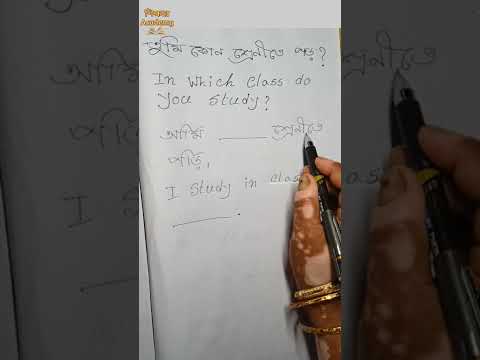 শিক্ষার
Academy
তুমি কোন শ্রেনীতে পড়?
In which class do
you study?
আমি ____ শ্রেনীতে
পড়ি,
I study in class
____.